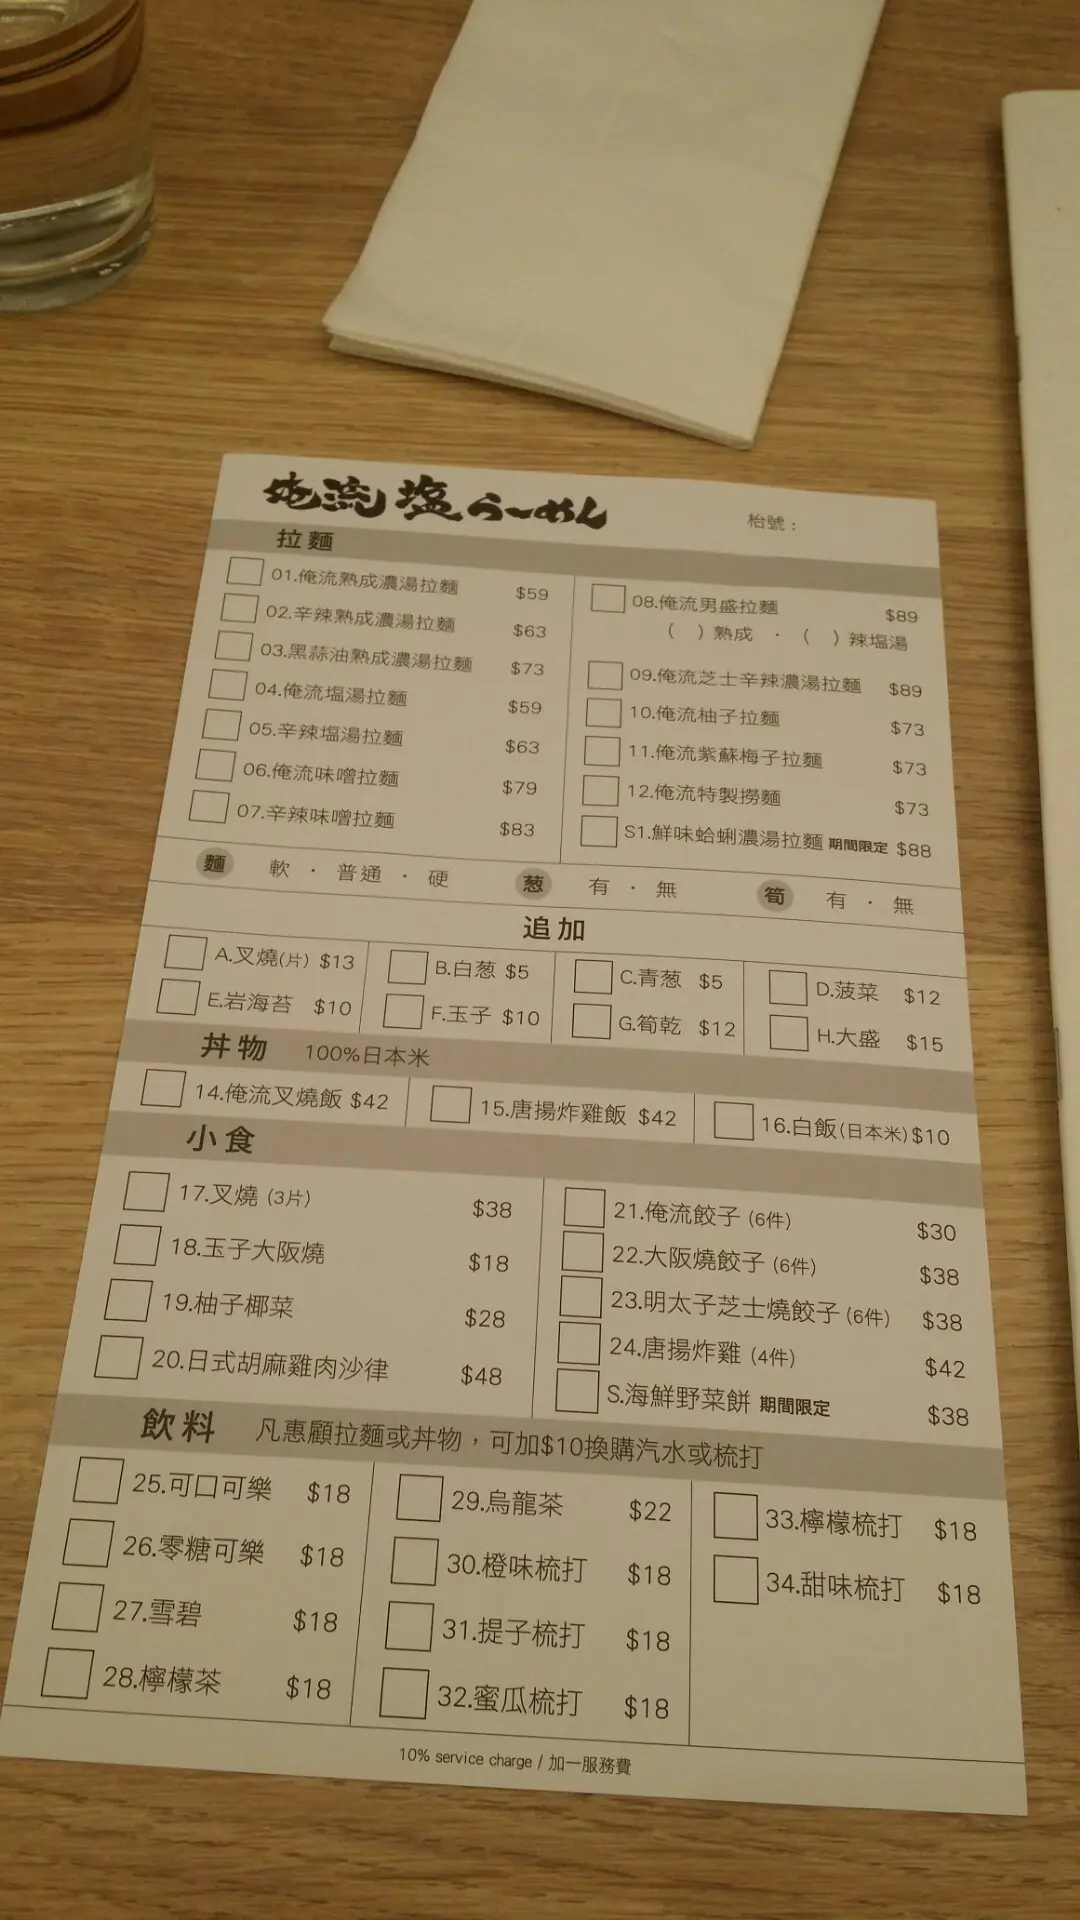 俺流塩らーめん
枱號：
拉麵
01.俺流熟成濃湯拉麵 $59
02.辛辣熟成濃湯拉麵 $63
03.黑蒜油熟成濃湯拉麵 $73
04.俺流塩湯拉麵 $59
05.辛辣塩湯拉麵 $63
06.俺流味噌拉麵 $79
07.辛辣味噌拉麵 $83
08.俺流男盛拉麵 $89
( )熟成 · ( )辣塩湯
09.俺流芝士辛辣濃湯拉麵 $89
10.俺流柚子拉麵 $73
11.俺流紫蘇梅子拉麵 $73
12.俺流特製撈麵 $73
S1.鮮味蛤蜊濃湯拉麵 期間限定 $88
麵 軟 · 普通 · 硬 葱 有 · 無 筍 有 · 無
追加
A.叉燒(片) $13 B.白葱 $5 C.青葱 $5 D.菠菜 $12
E.岩海苔 $10 F.玉子 $10 G.筍乾 $12 H.大盛 $15
丼物 100%日本米
14.俺流叉燒飯 $42 15.唐揚炸雞飯 $42 16.白飯(日本米) $10
小食
17.叉燒 (3片) $38
18.玉子大阪燒 $18
19.柚子椰菜 $28
20.日式胡麻雞肉沙律 $48
21.俺流餃子 (6件) $30
22.大阪燒餃子 (6件) $38
23.明太子芝士燒餃子 (6件) $38
24.唐揚炸雞 (4件) $42
S.海鮮野菜餅 期間限定 $38
飲料 凡惠顧拉麵或丼物，可加$10換購汽水或梳打
25.可口可樂 $18
26.零糖可樂 $18
27.雪碧 $18
28.檸檬茶 $18
29.烏龍茶 $22
30.橙味梳打 $18
31.提子梳打 $18
32.蜜瓜梳打 $18
33.檸檬梳打 $18
34.甜味梳打 $18
10% service charge / 加一服務費